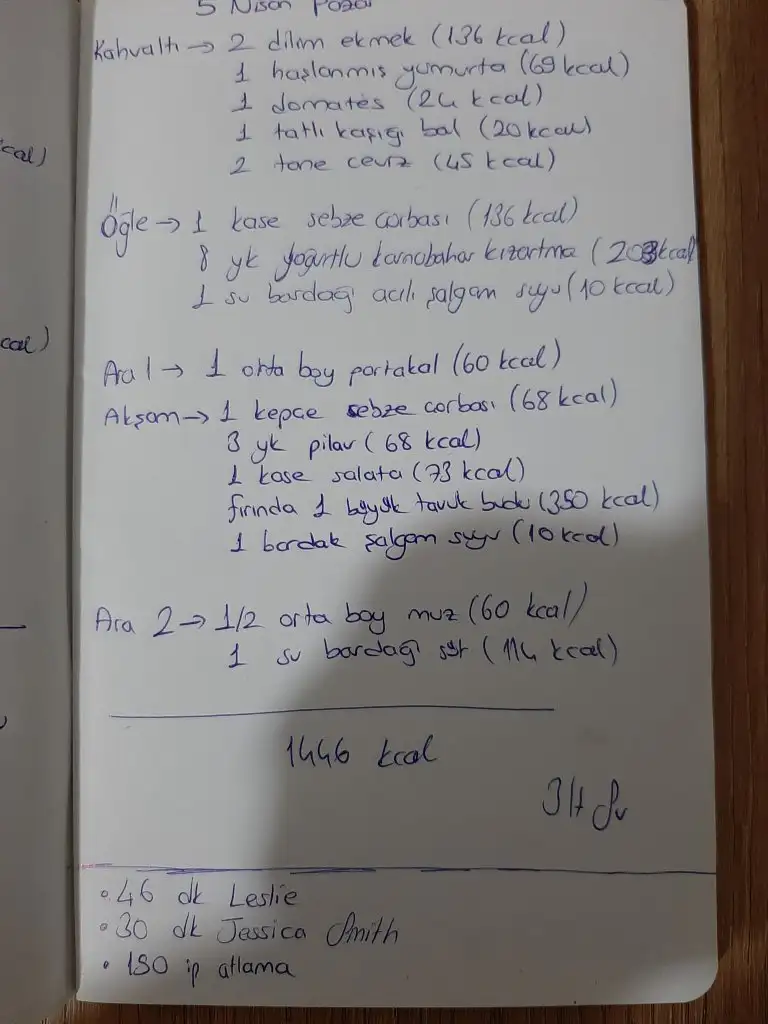 5 Nisan Pazar
Kahvaltı → 2 dilim ekmek (136 kcal)
1 haşlanmış yumurta (69 kcal)
1 domates (24 kcal)
1 tatlı kaşığı bal (20 kcal)
2 tane ceviz (45 kcal)
Öğle → 1 kase sebze çorbası (136 kcal)
8 yk yoğurtlu karnabahar kızartma (208 kcal)
1 su bardağı acılı şalgam suyu (10 kcal)
Ara 1 → 1 orta boy portakal (60 kcal)
Akşam → 1 kepçe sebze çorbası (68 kcal)
3 yk pilav (68 kcal)
1 kase salata (73 kcal)
fırında 1 büyük tavuk budu (350 kcal)
1 bardak şalgam suyu (10 kcal)
Ara 2 → 1/2 orta boy muz (60 kcal)
1 su bardağı süt (114 kcal)
1446 kcal
3 lt Su
• 46 dk Leslie
• 30 dk Jessica Smith
• 150 ip atlama
cal)
cal)